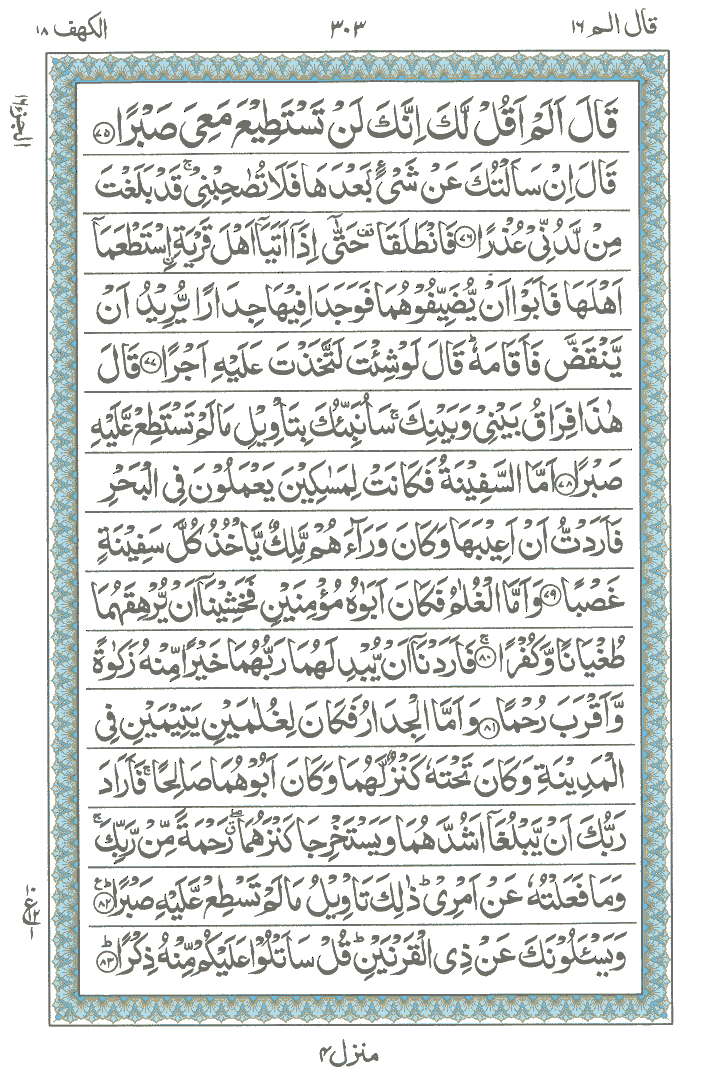 قال الم ١٦ ٣٠٣ الكهف ١٨
الجزء ١٦
قَالَ اَلَمْ اَقُلْ لَّكَ اِنَّكَ لَنْ تَسْتَطِيْعَ مَعِىَ صَبْرًا ﴿٧٥﴾
قَالَ اِنْ سَاَلْتُكَ عَنْ شَىْءٍۭ بَعْدَهَا فَلَا تُصٰحِبْنِىْ ۚ قَدْ بَلَغْتَ
مِنْ لَّدُنِّىْ عُذْرًا ﴿٧٦﴾ فَانْطَلَقَا ۥ حَتّٰٓى اِذَآ اَتَيَآ اَهْلَ قَرْيَةِ ۨاسْتَطْعَمَآ
اَهْلَهَا فَاَبَوْا اَنْ يُّضَيِّفُوْهُمَا فَوَجَدَا فِيْهَا جِدَارًا يُّرِيْدُ اَنْ
يَّنْقَضَّ فَاَقَامَهٗ ؕ قَالَ لَوْ شِئْتَ لَتَّخَذْتَ عَلَيْهِ اَجْرًا ﴿٧٧﴾ قَالَ
هٰذَا فِرَاقُ بَيْنِىْ وَبَيْنِكَ ۚ سَاُنَبِّئُكَ بِتَاْوِيْلِ مَا لَمْ تَسْتَطِعْ عَّلَيْهِ
صَبْرًا ﴿٧٨﴾ اَمَّا السَّفِيْنَةُ فَكَانَتْ لِمَسٰكِيْنَ يَعْمَلُوْنَ فِى الْبَحْرِ
فَاَرَدْتُّ اَنْ اَعِيْبَهَا وَكَانَ وَرَآءَهُمْ مَّلِكٌ يَّاْخُذُ كُلَّ سَفِيْنَةٍ
غَصْبًا ﴿٧٩﴾ وَاَمَّا الْغُلٰمُ فَكَانَ اَبَوٰهُ مُؤْمِنَيْنِ فَخَشِيْنَآ اَنْ يُّرْهِقَهُمَا
طُغْيَانًا وَّكُفْرًا ﴿٨٠﴾ ۚ فَاَرَدْنَآ اَنْ يُّبْدِلَهُمَا رَبُّهُمَا خَيْرًا مِّنْهُ زَكٰوةً
وَّاَقْرَبَ رُحْمًا ﴿٨١﴾ وَاَمَّا الْجِدَارُ فَكَانَ لِغُلٰمَيْنِ يَتِيْمَيْنِ فِى
الْمَدِيْنَةِ وَكَانَ تَحْتَهٗ كَنْزٌ لَّهُمَا وَكَانَ اَبُوْهُمَا صَالِحًا ۚ فَاَرَادَ
رَبُّكَ اَنْ يَّبْلُغَآ اَشُدَّهُمَا وَيَسْتَخْرِجَا كَنْزَهُمَا ۖۗ رَحْمَةً مِّنْ رَّبِّكَ ۚ
وَمَا فَعَلْتُهٗ عَنْ اَمْرِىْ ؕ ذٰلِكَ تَاْوِيْلُ مَا لَمْ تَسْطِعْ عَّلَيْهِ صَبْرًا ؕ ﴿٨٢﴾ ع
وَيَسْئَلُوْنَكَ عَنْ ذِى الْقَرْنَيْنِ ؕ قُلْ سَاَتْلُوْا عَلَيْكُمْ مِّنْهُ ذِكْرًا ؕ ﴿٨٣﴾
منزل ٤